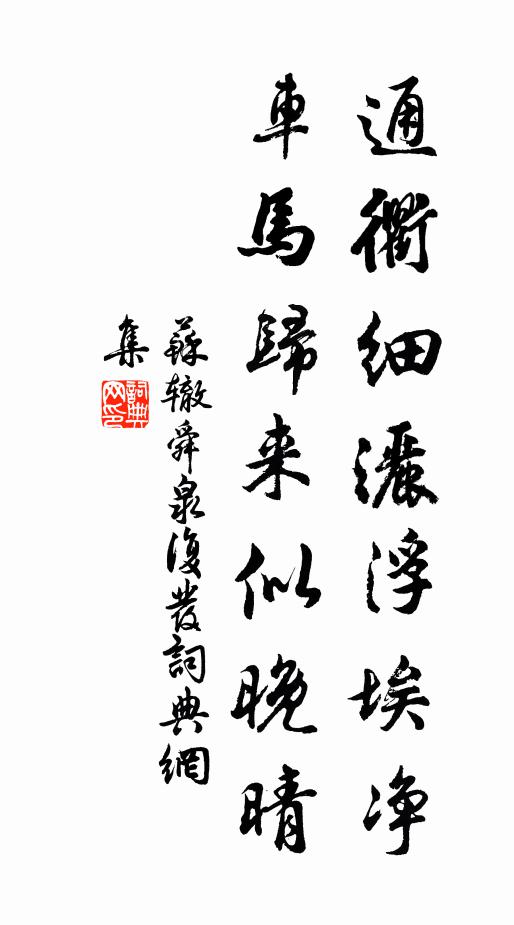 通衢細灑浮埃净
車馬歸来似晚晴
蘇辙舜泉復發詞典網
集
詞典
网印